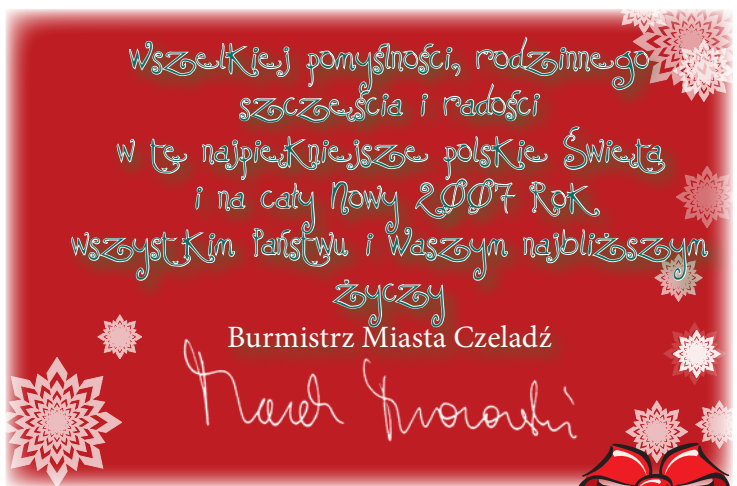 Wszelkiej pomyślności, rodzinnego
szczęścia i radości
w te najpiękniejsze polskie Święta
i na cały Nowy 2007 Rok
wszystkim Państwu i Waszym najbliższym
życzy
Burmistrz Miasta Czeladź
Marek